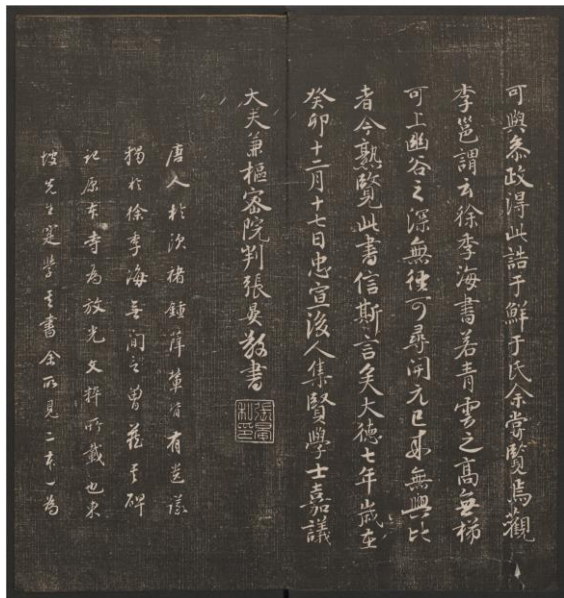 可與叅政得此誥于鮮于氏余嘗覽焉觀
李邕謂云徐季海書若青雲之高無梯
可上幽谷之深無徑可尋開元已來無與比
者今熟覽此書信斯言矣大德七年歲在
癸卯十二月十七日忠宣後人集賢學士嘉議
大夫兼樞密院判張晏敬書
唐人於歐褚鍾薛輩皆有遺議
獨於徐季海無間言曾其碑
記原寺為放光文粹所載也東
坡先生寔學其書余所見二本一為